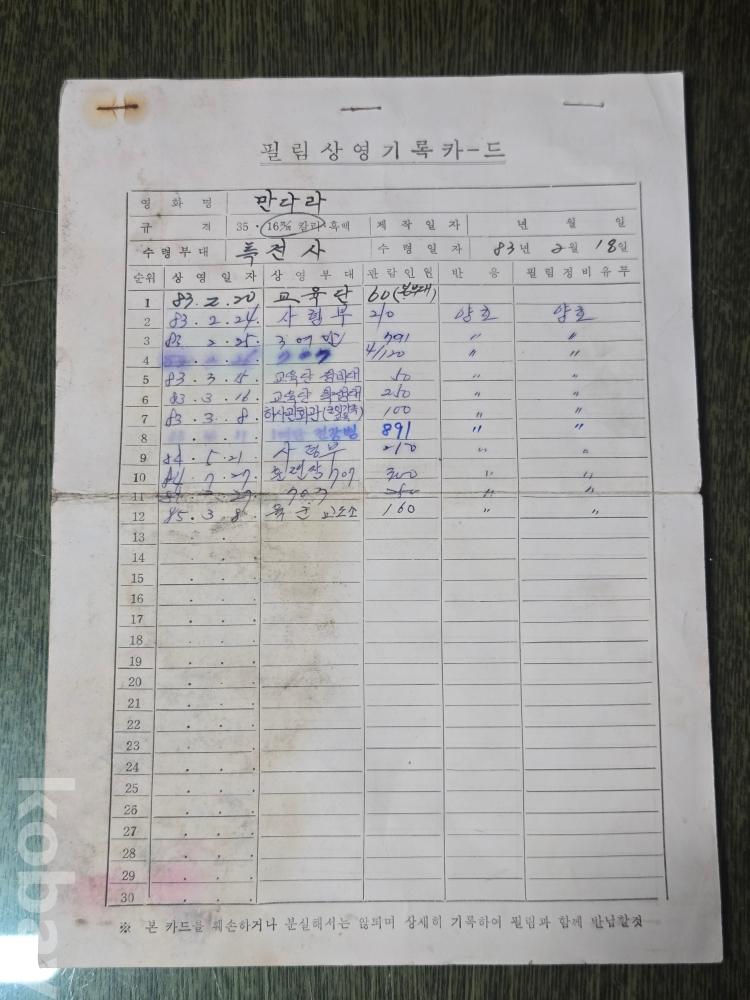 필림상영기록카-드
영화명 만다라
규격 35·16㎜ 칼라·흑백 제작일자 년 월 일
수령부대 특전사 수령일자 83년 2월 18일
순위 상영일자 상영부대 관람인원 반응 필림정비유무
1 83.2.20 교육단 60(본부대)
2 83.2.24. 사령부 210 양호 양호
3 83 2.25. 3여단 〃 〃
4 707 4/120 〃 〃
5 83.3.15 교육단 50 〃 〃
6 83.3.16 교육단 250 〃 〃
7 83.3.8 하사관회관 100 〃 〃
8 891 〃 〃
9 84.5.21. 사령부 210 〃 〃
10 84.7.27. 707 300 〃 〃
11 707 250 〃 〃
12 85.3.8 육군 교도소 160 〃 〃
13
14
15
16
17
18
19
20
21
22
23
24
25
26
27
28
29
30
※ 본 카드를 훼손하거나 분실해서는 않되며 상세히 기록하여 필림과 함께 반납할것
kobay